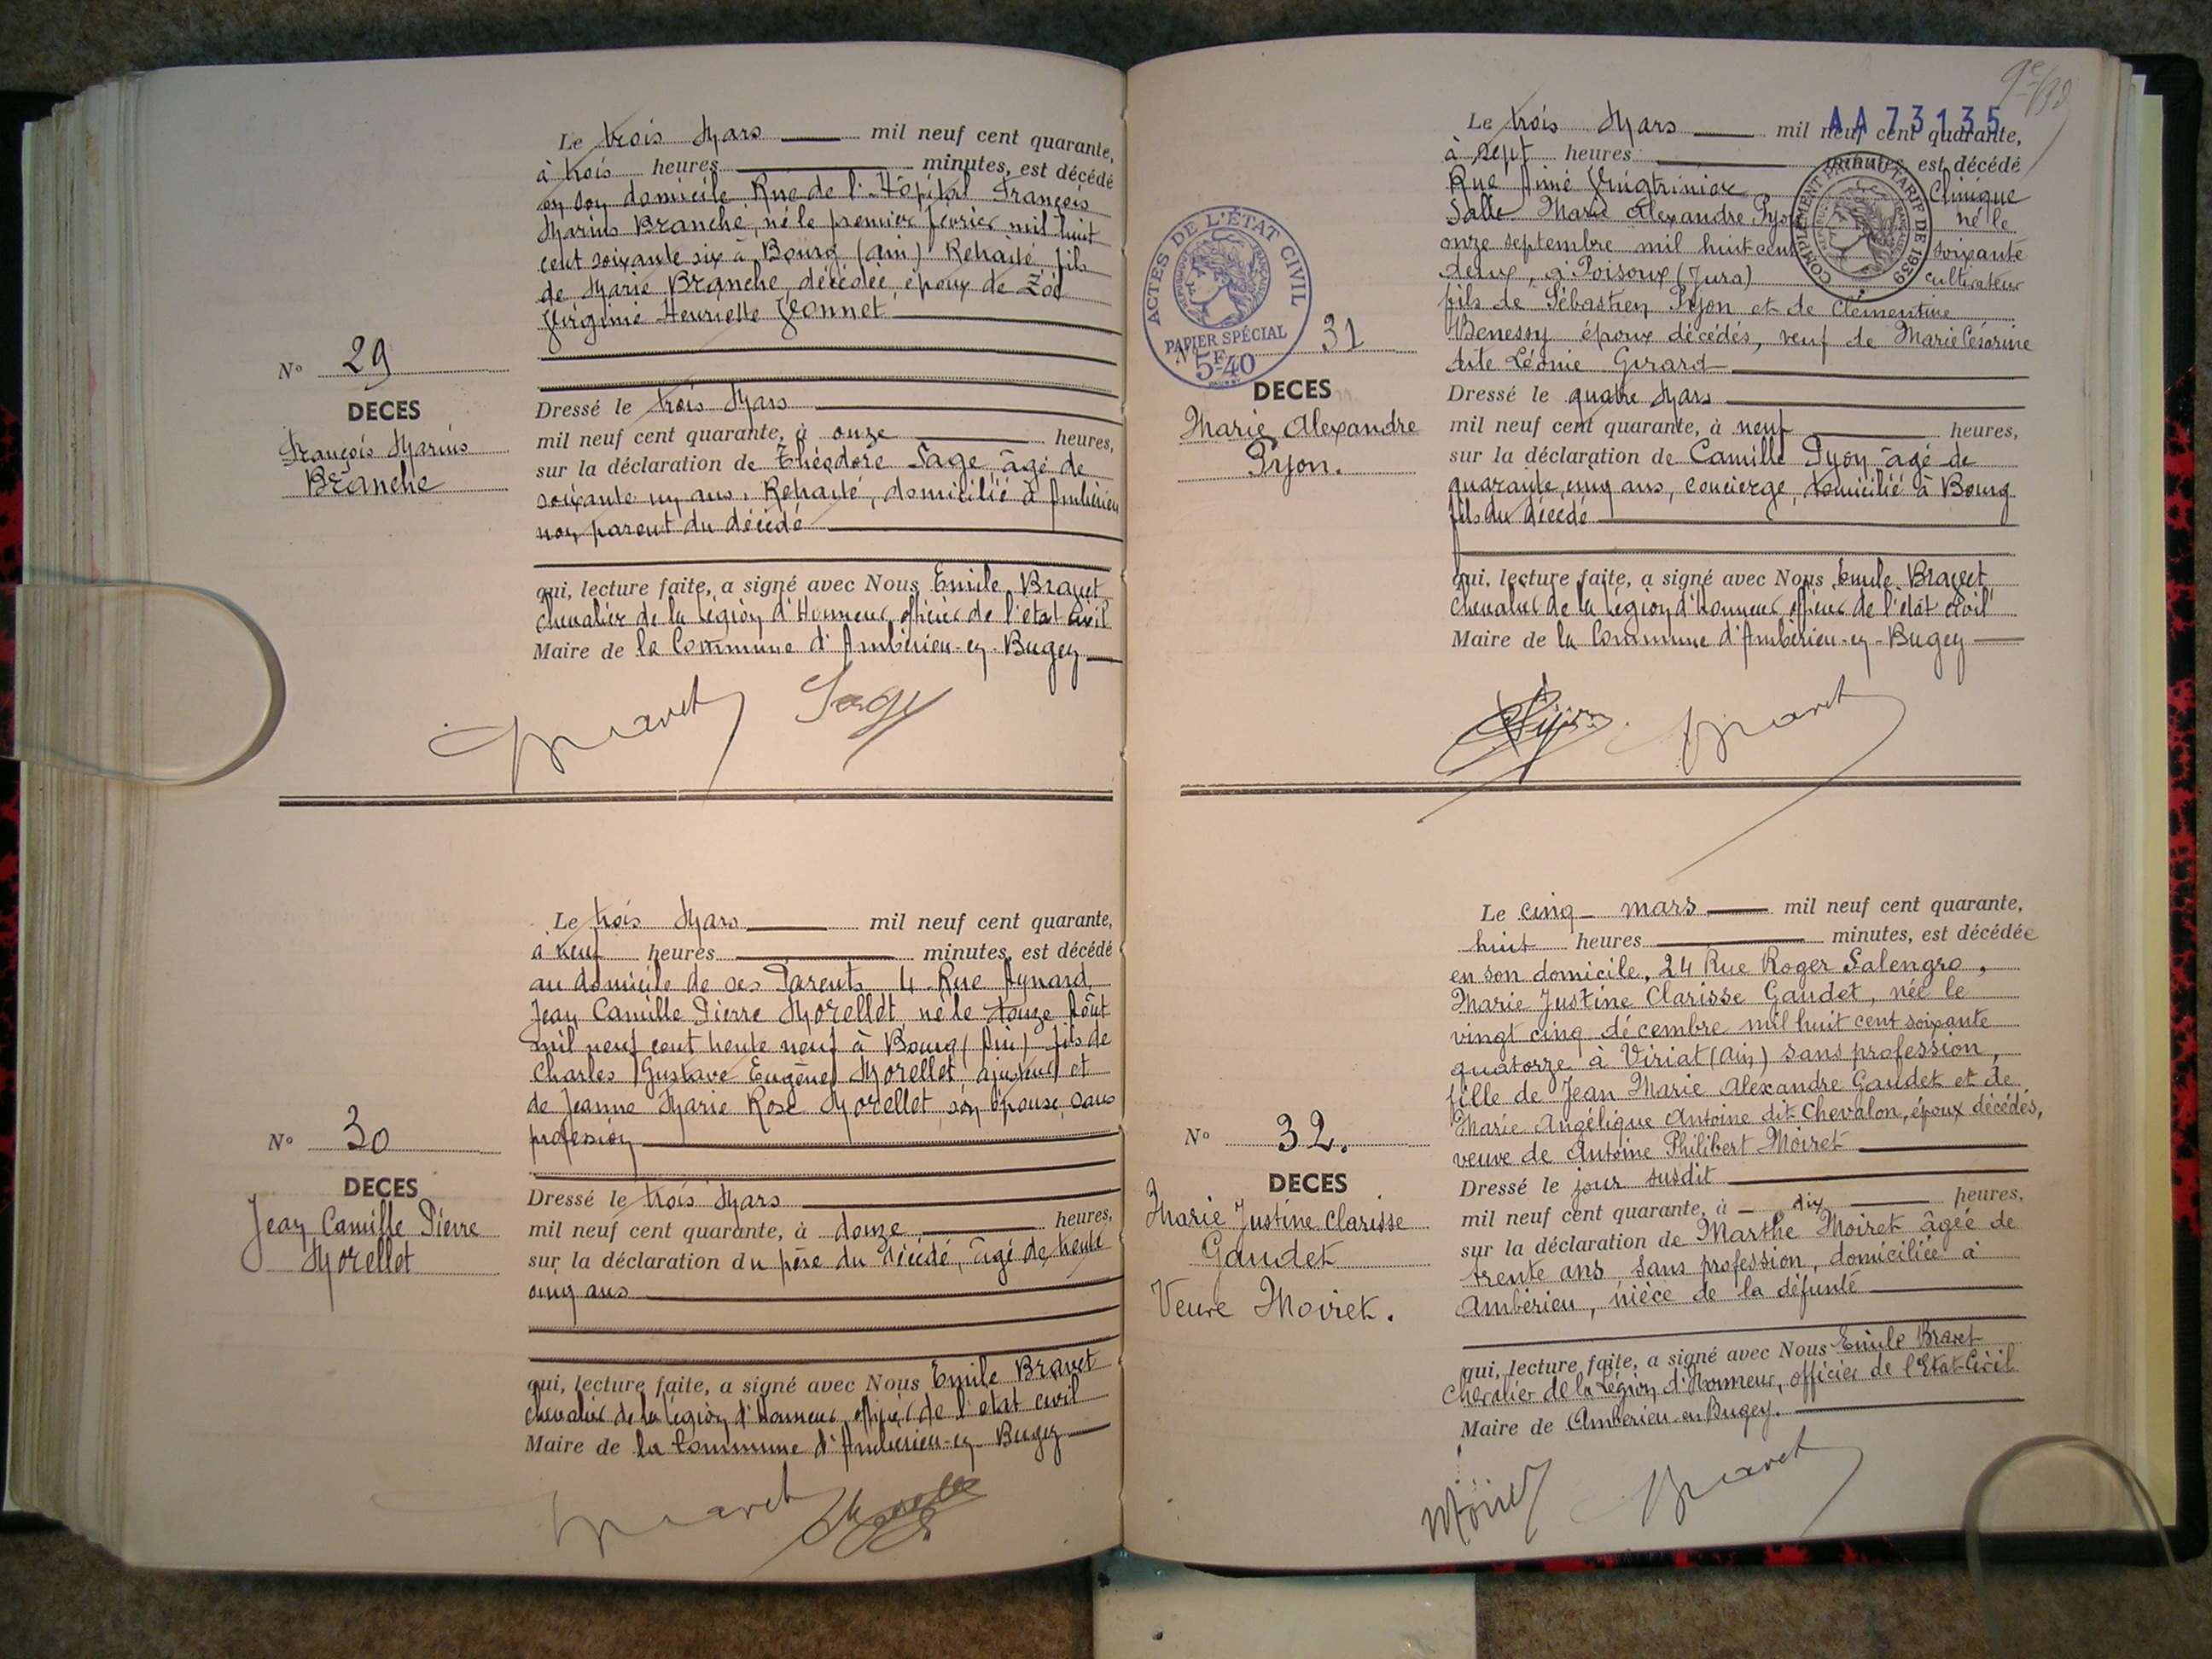 Le trois Mars mil neuf cent quarante,
à trois heures minutes, est décédé
en son domicile Rue de l'Hôpital François
Marius Branche, né le premier fevrier mil huit
cent soixante six à Bourg (Ain) Retraité fils
de Marie Branche, décédée, époux de Zoé
Virginie Henriette Vonnet
N° 29
DECES
François Marius
Branche
Dressé le trois Mars
mil neuf cent quarante, à onze heures,
sur la déclaration de Théodore Sage âgé de
soixante un ans, Retraité, domicilié à Ambérieu
non parent du décédé
qui, lecture faite, a signé avec Nous Emile Bravet
chevalier de la Légion d'Honneur officier de l'état civil
Maire de la Commune d'Ambérieu-en-Bugey
Bravet Sage
Le trois Mars mil neuf cent quarante,
à neuf heures minutes, est décédé
au domicile de ses Parents 4 Rue Aynard
Jean Camille Pierre Morellet né le Août
mil neuf cent trente neuf à Bourg (Ain) fils de
Charles Gustave Eugène Morellet, ajusteur et
de Jeanne Marie Rose Morellet, son épouse, sans
profession
N° 30
DECES
Jean Camille Pierre
Morellet
Dressé le trois Mars
mil neuf cent quarante, à douze heures,
sur la déclaration du père du décédé, âgé de trente
cinq ans
qui, lecture faite, a signé avec Nous Emile Bravet
chevalier de la Légion d'Honneur officier de l'état civil
Maire de la Commune d'Ambérieu-en-Bugey
Bravet
AA 73135
Le trois Mars mil neuf cent quarante,
à sept heures minutes est décédé
Rue Aimé Vingtrinier Clinique
Salle Marie Alexandre Pyon né le
onze septembre mil huit cent soixante
deux, à Poisoux (Jura) cultivateur
fils de Sébastien Pyon et de Clémentine
époux décédés, veuf de Marie Césarine
dite Léonie Girard
COMPLÉMENT PAR AU TARIF DE 1939
ACTES DE L'ÉTAT CIVIL
PAPIER SPÉCIAL
5F.40
N° 31
DECES
Marie Alexandre
Pyon.
Dressé le quatre Mars
mil neuf cent quarante, à neuf heures,
sur la déclaration de Camille Pyon âgé de
quarante cinq ans, concierge, domicilié à Bourg
fils du décédé
qui, lecture faite, a signé avec Nous Emile Bravet
chevalier de la Légion d'Honneur officier de l'état civil
Maire de la Commune d'Ambérieu-en-Bugey
Pyon Bravet
Le cinq mars mil neuf cent quarante,
huit heures minutes, est décédée
en son domicile, 24 Rue Roger Salengro,
Marie Justine Clarisse Gaudet, née le
vingt cinq décembre mil huit cent soixante
quatorze à Viriat (Ain) sans profession,
fille de Jean Marie Alexandre Gaudet et de
Marie Angélique Antoine dit Chevalon, époux décédés,
veuve de Antoine Philibert Moiret
N° 32.
DECES
Marie Justine Clarisse
Gaudet
Veuve Moiret.
Dressé le jour susdit
mil neuf cent quarante, à dix heures,
sur la déclaration de Marthe Moiret âgée de
trente ans sans profession, domiciliée à
Ambérieu, nièce de la défunte
qui, lecture faite, a signé avec Nous Emile Bravet
Chevalier de la Légion d'Honneur, officier de l'Etat Civil
Maire de Ambérieu en Bugey.
Moiret Bravet